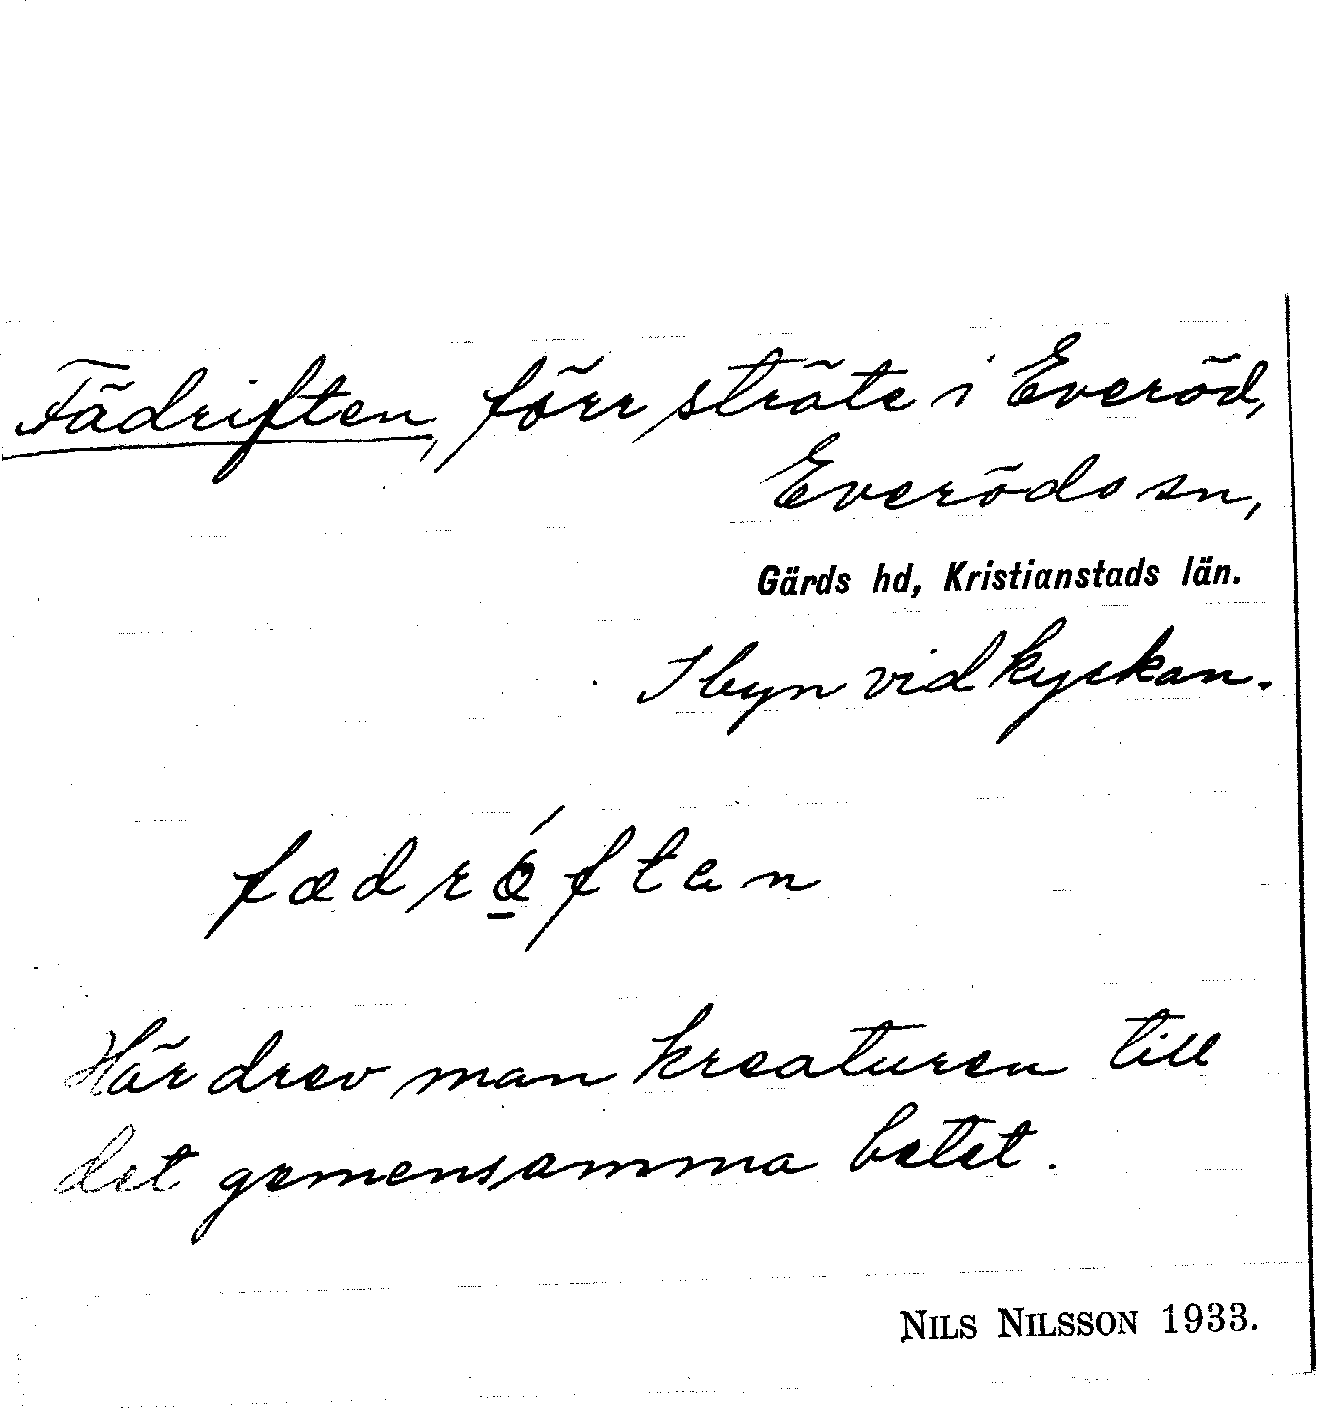 Fädriften, förr sträte i Everöd,
Everöds sn,
Gärds hd, Kristianstads län.
I byn vid kyrkan.
fædrǿ̱ften
Här drev man kreaturen till
det gemensamma betet.
NILS NILSSON 1933.